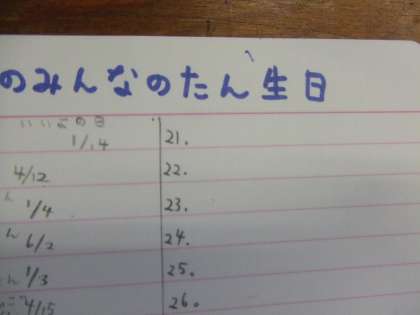 のみんなのたん生日
いいよの日
1/14 21.
4/12 22.
ん 1/4 23.
ん 6/2 24.
ん 1/3 25.
4/15 26.